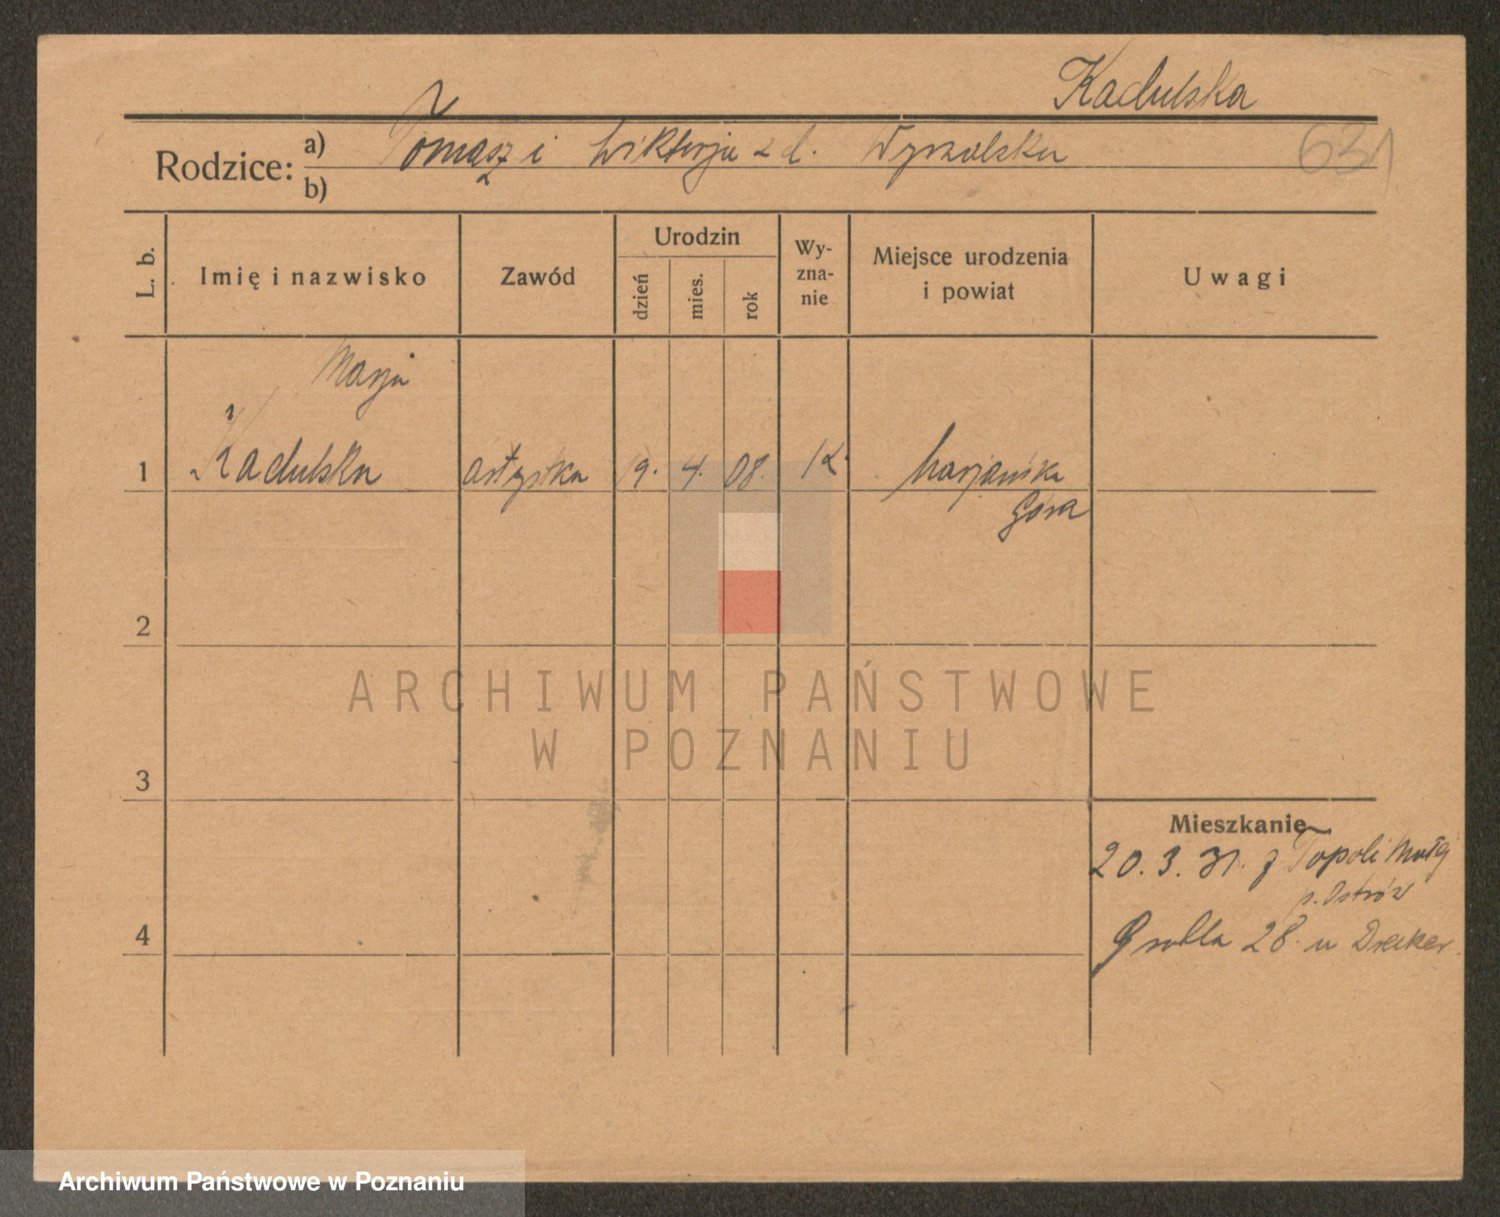 Kadulska
Rodzice: a) Tomasz i Wiktorja z d.
b)
631
L. b.
Imię i nazwisko
Zawód
Urodzin
dzień
mies.
rok
Wy-
zna-
nie
Miejsce urodzenia
i powiat
Uwagi
Marja
1 Kadulska artystka 19. 4. 08. Marjańska
Góra
2
ARCHIWUM PAŃSTWOWE
W POZNANIU
3
Mieszkanie
20. 3. 31. z Topoli Małej
p. Ostrów
4 Grobla 28. u Drecker
Archiwum Państwowe w Poznaniu